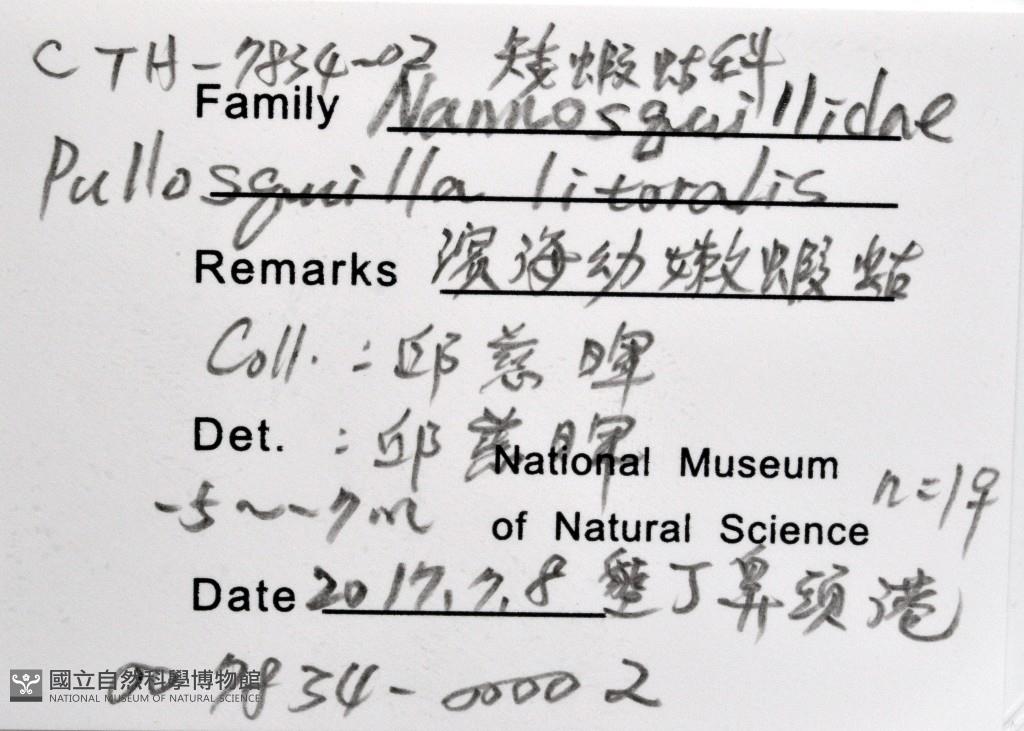 CTH-7834-02 矮蝦蛄科
Family Nannosquillidae
Pullosquilla litoralis
Remarks 濱海幼嫩蝦蛄
Coll. : 邱慈暉
Det. : 邱慈暉
National Museum
-5~-7m of Natural Science n=1♀
Date 2017.7.8 墾丁鼻頭港
007834-00002
國立自然科學博物館
NATIONAL MUSEUM OF NATURAL SCIENCE